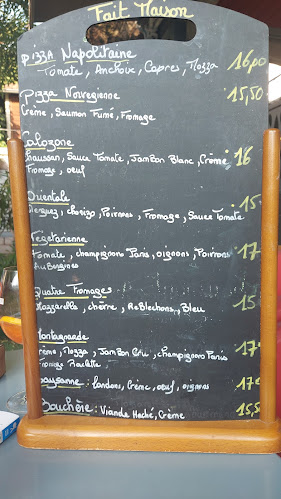 Fait Maison
Pizza Napolitaine 16,00
Tomate, Anchoix, Capres, Mozza
Pizza Norvegienne 15,50
Crème, Saumon Fumé, Fromage
Calozone
chausson, Sauce Tomate, JamBon Blanc, Crème 16
Fromage, oeuf
Orientale 15
Merguez, chorizo, Poivrons, Fromage, Sauce Tomate
Vegetarienne
Tomate, champignons Paris, oignons, Poivrons 17
AuBergines
Quatre Fromages
Mozzarella, chèvre, ReBlochons, Bleu 15
Montagnarde
Crème, Mozza, JamBon Cru, champignons Paris 17€
Fromage Raclette
Paysanne : Lardons, Crème, oeuf, oignons 17€
Bouchère : Viande Haché, Crème 15,5